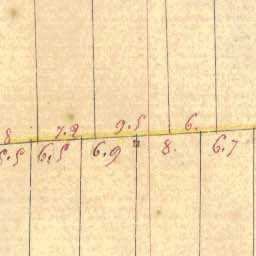 8 7.2 9.5 6.
5.5 6.5 6.9 8. 6.7